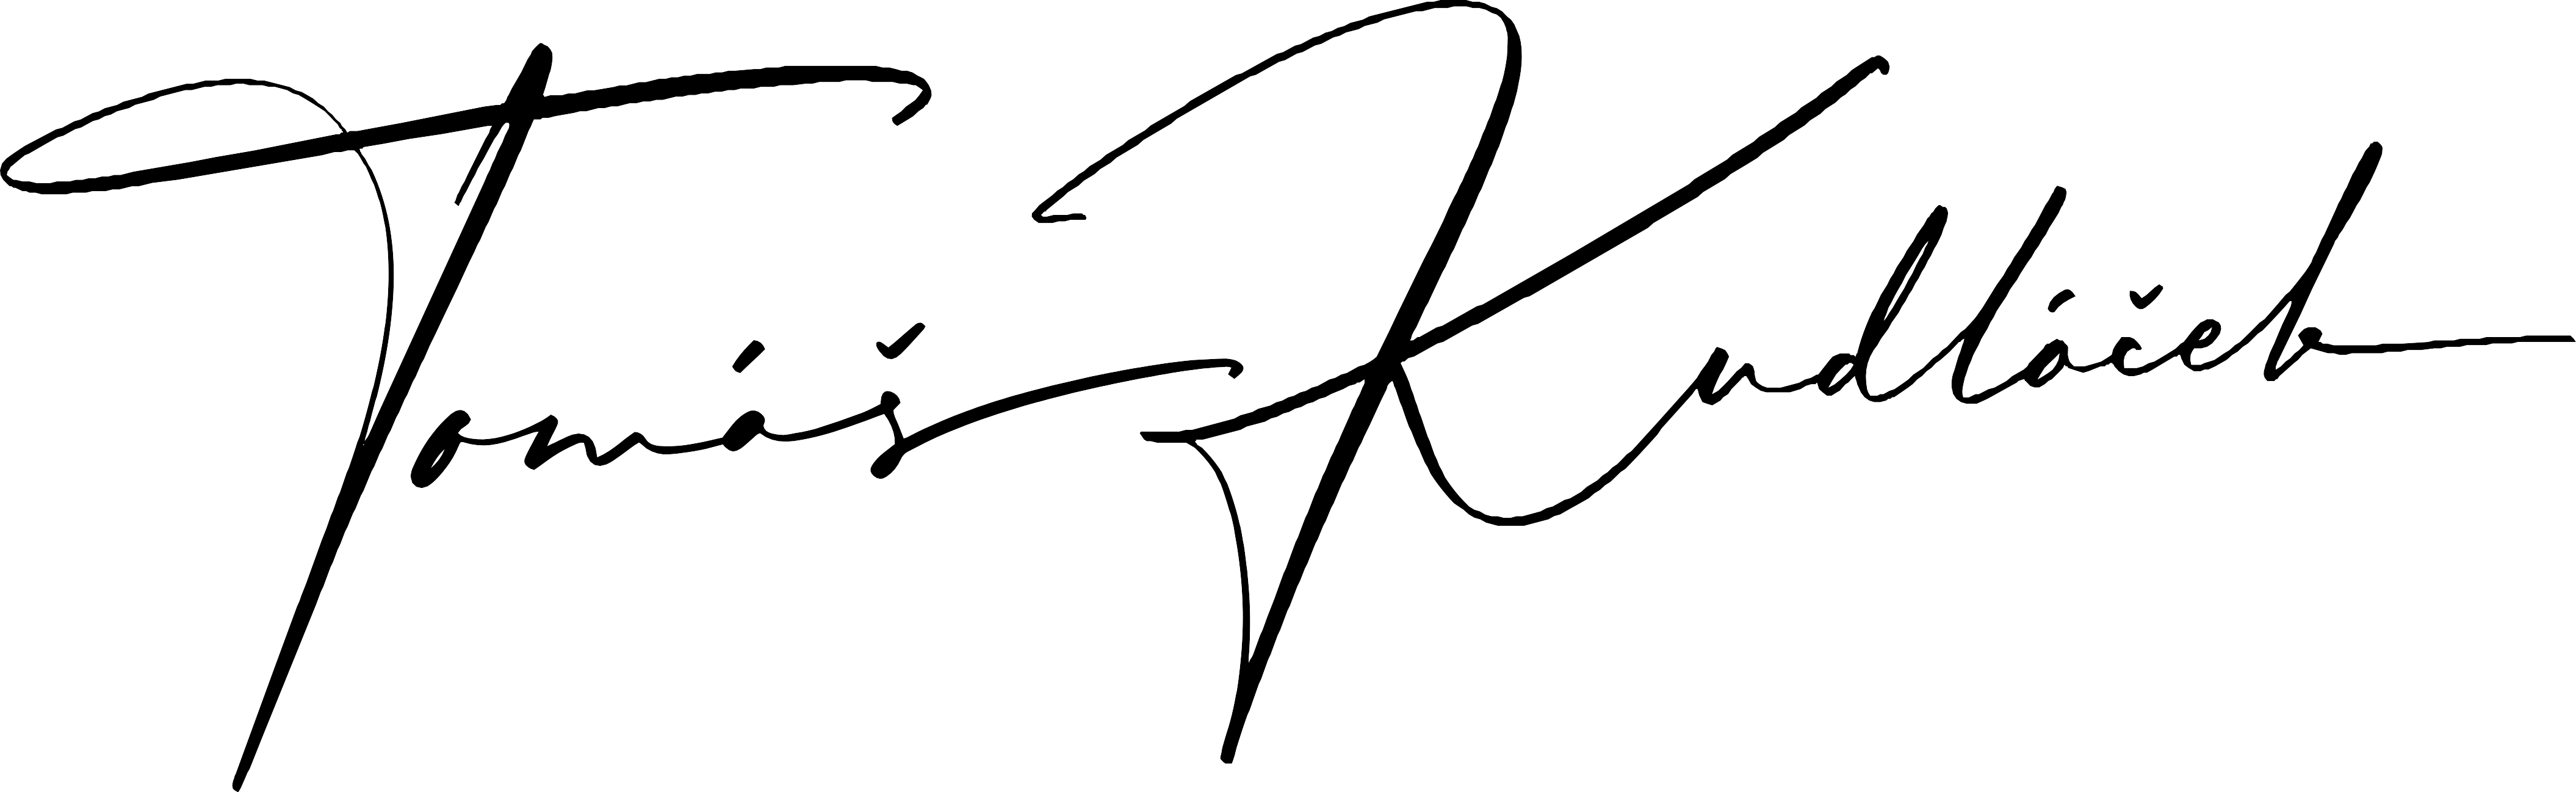 Tomáš Kudláček